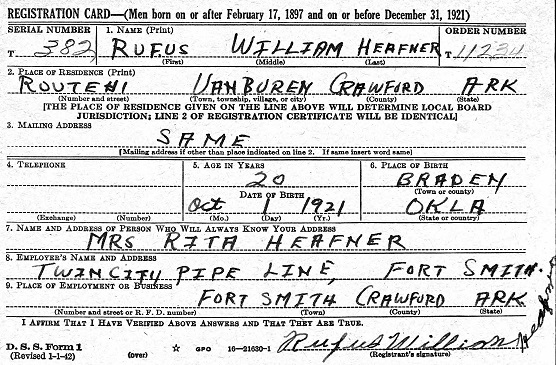 REGISTRATION CARD—(Men born on or after February 17, 1897 and on or before December 31, 1921)
SERIAL NUMBER 1. NAME (Print) ORDER NUMBER
T 382 RUFUS WILLIAM HEAFNER T
(First) (Middle) (Last)
2. PLACE OF RESIDENCE (Print)
ROUTE#1 VANBUREN CRAWFORD ARK
(Number and street) (Town, township, village, or city) (County) (State)
[THE PLACE OF RESIDENCE GIVEN ON THE LINE ABOVE WILL DETERMINE LOCAL BOARD
JURISDICTION; LINE 2 OF REGISTRATION CERTIFICATE WILL BE IDENTICAL]
3. MAILING ADDRESS
SAME
[Mailing address if other than place indicated on line 2. If same insert word same]
4. TELEPHONE 5. AGE IN YEARS 6. PLACE OF BIRTH
20 BRADEN
DATE OF BIRTH (Town or county)
Oct 1 1921 OKLA
(Exchange) (Number) (Mo.) (Day) (Yr.) (State or country)
7. NAME AND ADDRESS OF PERSON WHO WILL ALWAYS KNOW YOUR ADDRESS
MRS RITA HEAFNER
8. EMPLOYER'S NAME AND ADDRESS
TWIN CITY PIPE LINE, FORT SMITH.
9. PLACE OF EMPLOYMENT OR BUSINESS
FORT SMITH CRAWFORD ARK
(Number and street or R. F. D. number) (Town) (County) (State)
I AFFIRM THAT I HAVE VERIFIED ABOVE ANSWERS AND THAT THEY ARE TRUE.
D. S. S. Form 1
(Revised 1-1-42) (over) ☆ GPO 16—21630-1 Rufus William Heafner
(Registrant's signature)